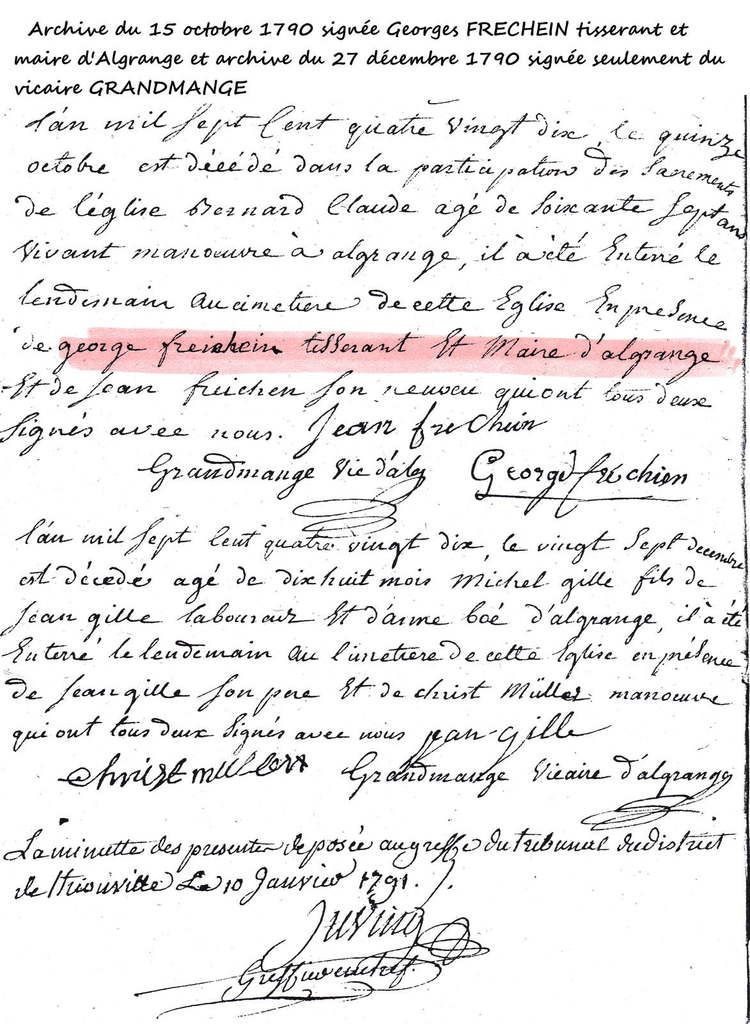 Archive du 15 octobre 1790 signée Georges FRECHEIN tisserant et
maire d'Algrange et archive du 27 décembre 1790 signée seulement du
vicaire GRANDMANGE
l'an mil Sept Cent quatre Vingt dix, le quinze
octobre est décédé dans la participation des Sacrements
de l'église Bernard Claude agé de Soixante Sept ans
Vivant manœuvre à algrange, il à été Enterré le
lendemain au cimetiere de cette Eglise En presence
de george freichein tisserant Et Maire d'algrange
Et de Jean freichen son neuveu qui ont tous deux
Signés avec nous. Jean frechein
Grandmange Vic d'alg George frechien
l'an mil Sept Cent quatre vingt dix, le vingt Sept decembre
est décedé agé de dixhuit mois Michel gille fils de
Jean gille laboureur Et d'anne boé d'algrange, il à été
Enterré le lendemain au Cimetiere de cette Eglise en présence
de Jean gille Son pere Et de christ Müller manœuvre
qui ont tous deux Signés avec nous jean Gille
christ mullerr Grandmange Vicaire d'algrange
La minutte des presentes deposée au greffe du tribunal du district
de thionville Le 10 Janvier 1791.
Greffier en chef.